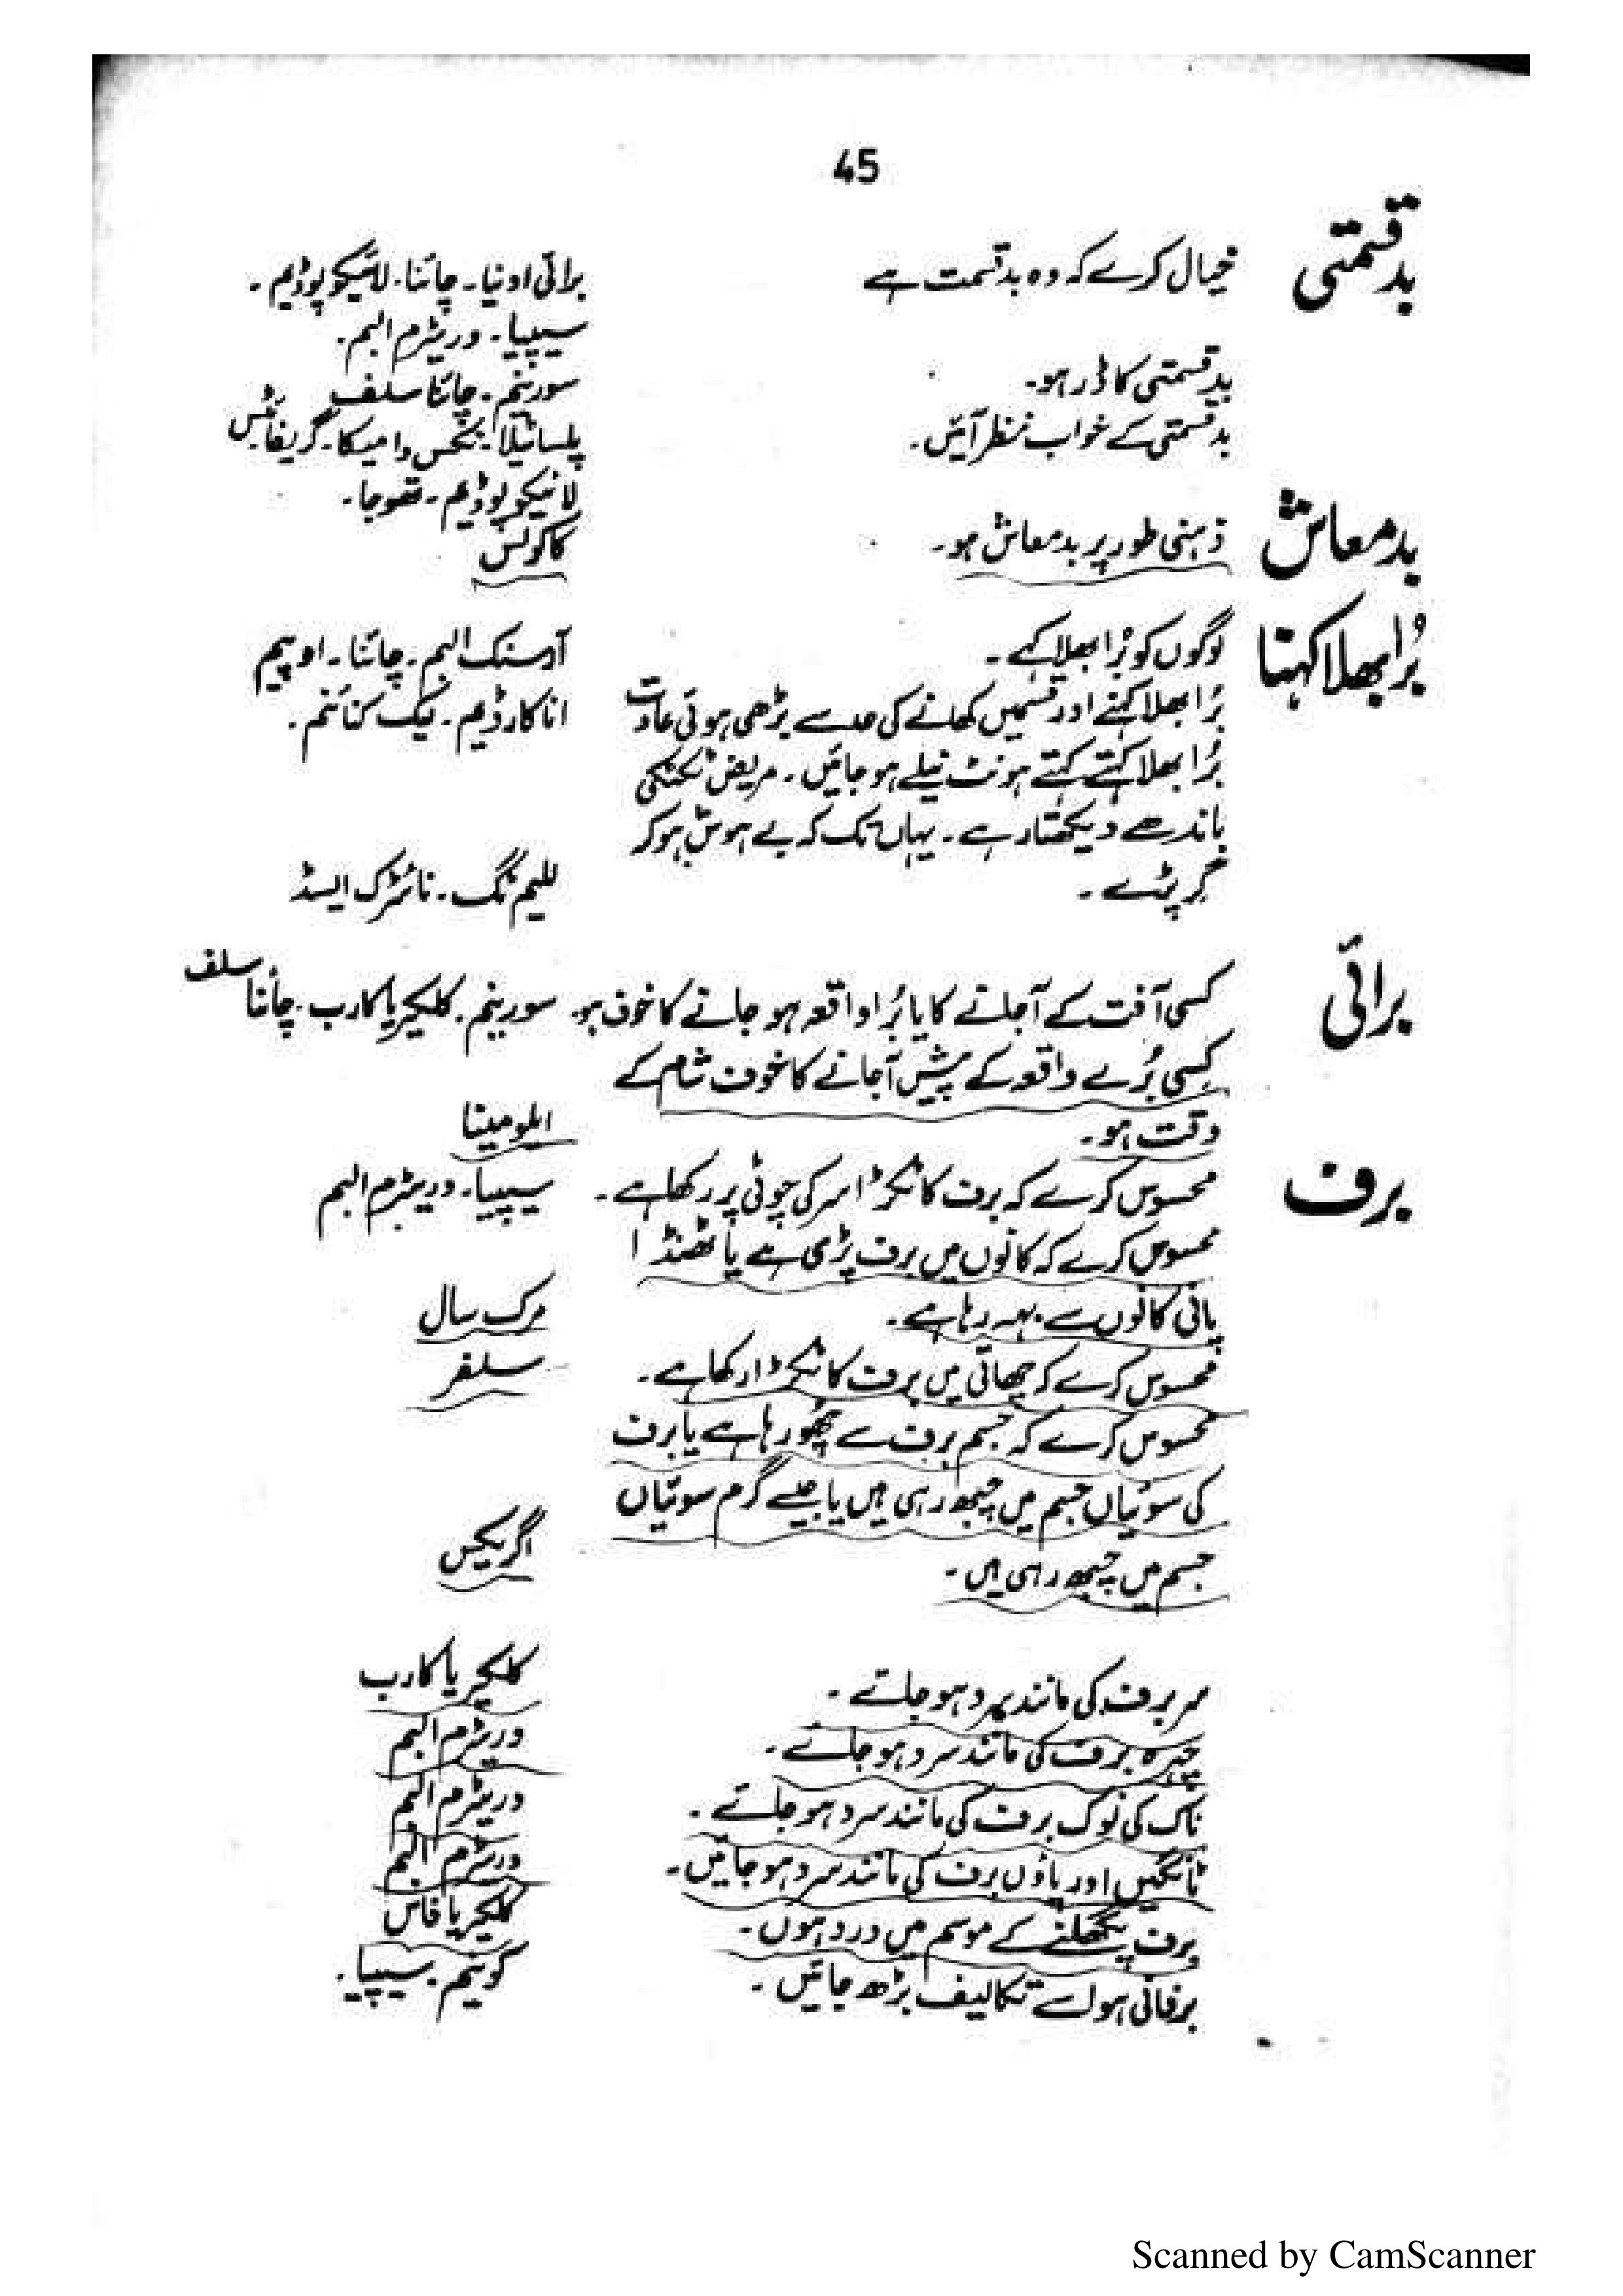 45
بدقسمتی
خیال کرے کہ وہ بدقسمت ہے
برائی اونیا۔ چائنا۔ لائیکوپوڈیم۔
سیپیا۔ وریٹرم البم۔
بدقسمتی کا ڈر ہو۔
سورینم۔ چائنا سلف
بدقسمتی کے خواب نظر آئیں۔
پلساٹیلا۔ نکس وامیکا۔ گریفائٹس
لائیکوپوڈیم۔ تھوجا۔
بدمعاش
ذہنی طور پر بدمعاش ہو۔
کاکولس
بُرا بھلا کہنا
لوگوں کو بُرا بھلا کہے۔
آرسنک البم۔ چائنا۔ اوپیم
بُرا بھلا کہنے اور قسمیں کھانے کی حد سے بڑھی ہوئی عادت
اناکارڈیم۔ لیک کنائنم۔
بُرا بھلا کہتے کہتے ہونٹ نیلے ہو جائیں۔ مریض ٹکٹکی
باندھے دیکھتا رہے۔ یہاں تک کہ بے ہوش ہو کر
گر پڑے۔
للیم ٹگ۔ نائٹرک ایسڈ
برائی
کسی آفت کے آجانے کا یا بُرا واقعہ ہو جانے کا خوف ہو۔ سورینم۔ کلکیریا کارب۔ چائنا سلف
کسی بُرے واقعہ کے پیش آجانے کا خوف شام کے
وقت ہو۔
ایلومینا
برف
محسوس کرے کہ برف کا ٹکڑا سر کی چوٹی پر رکھا ہے۔
سیپیا۔ وریٹرم البم
محسوس کرے کہ کانوں میں برف پڑی ہے یا ٹھنڈا
پانی کانوں سے بہہ رہا ہے۔
مرک سال
محسوس کرے کہ چھاتی میں برف کا ٹکڑا رکھا ہے۔
سلفر
محسوس کرے کہ جسم برف سے چھُو رہا ہے یا برف
کی سوئیاں جسم میں چبھ رہی ہیں یا جیسے گرم سوئیاں
جسم میں چبھ رہی ہیں۔
اگریکس
سر برف کی مانند سرد ہو جائے۔
کلکیریا کارب
چہرہ برف کی مانند سرد ہو جائے۔
وریٹرم البم
ناک کی نوک برف کی مانند سرد ہو جائے۔
وریٹرم البم
ٹانگیں اور پاؤں برف کی مانند سرد ہو جائیں۔
وریٹرم البم
برف پگھلنے کے موسم میں درد ہوں۔
کلکیریا فاس
برفانی ہوا سے تکالیف بڑھ جائیں۔
کونیم۔ سیپیا۔
Scanned by CamScanner